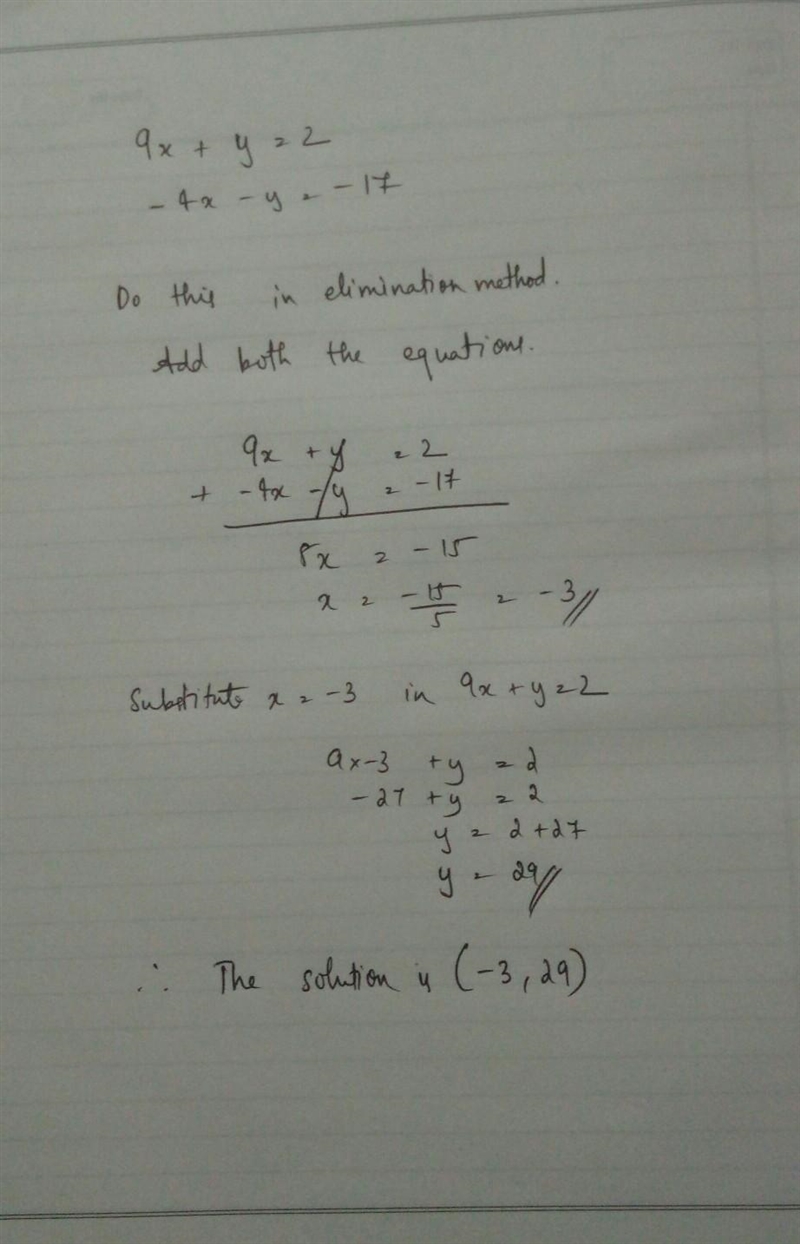 9x + y = 2
- 4x - y = - 17
Do this in elimination method.
Add both the equations.
9x + y = 2
+ - 4x - y = - 17
5x = - 15
x = -15/5 = -3//
Substitute x = -3 in 9x + y = 2
9x-3 + y = 2
-27 + y = 2
y = 2 + 27
y = 29//
∴ The solution is (-3, 29)